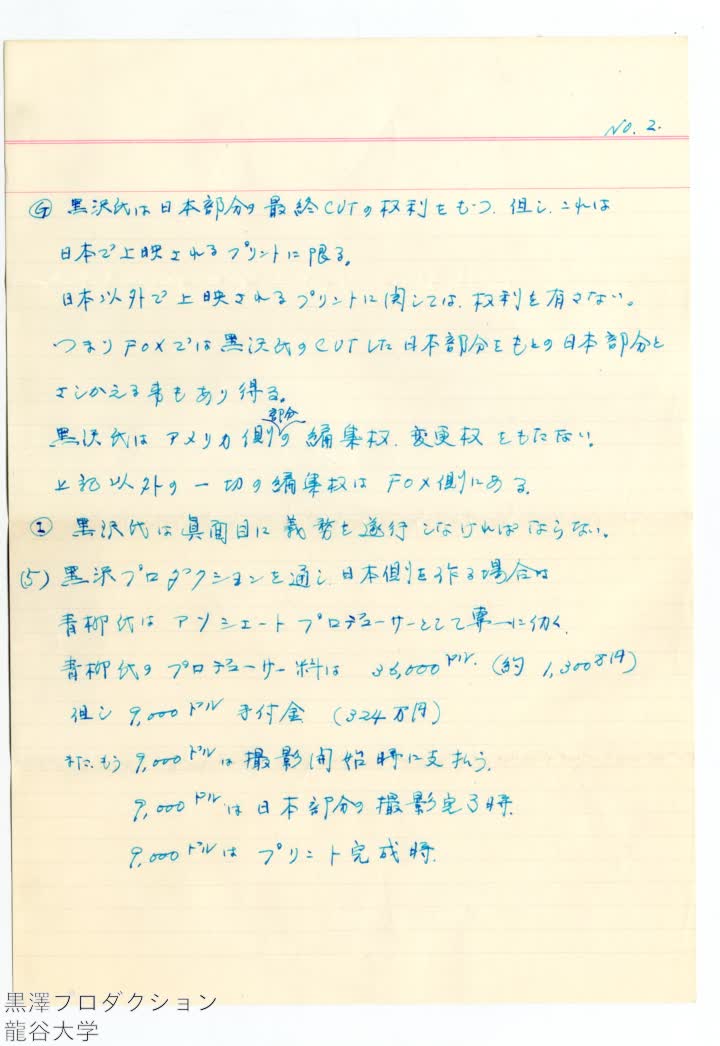 No. 2.
Ⓖ 黒沢氏は日本部分の最終CUTの权利をもつ、但し、これは
日本で上映されるプリントに限る。
日本以外で上映されるプリントに関しては、权利を有さない。
つまりFOXでは黒沢氏のCUTした日本部分をもとの日本部分と
さしかえる事もあり得る。
黒沢氏はアメリカ側部分の編集权、変更权をもたない。
上記以外の一切の編集权はFOX側にある。
① 黒沢氏は真面目に義務を遂行しなければならない。
(5) 黒沢プロダクションを通し、日本側を作る場合は
青柳氏はアソシエートプロデューサーとして専一に仂く。
青柳氏のプロデューサー料は 36,000ドル. (約 1,300万円)
但し 9,000ドル 手付金 (324万円)
またもう 9,000ドルは撮影開始時に支払う。
9,000ドルは日本部分の撮影完了時.
9,000ドルは プリント完成時.
黒澤プロダクション
龍谷大学